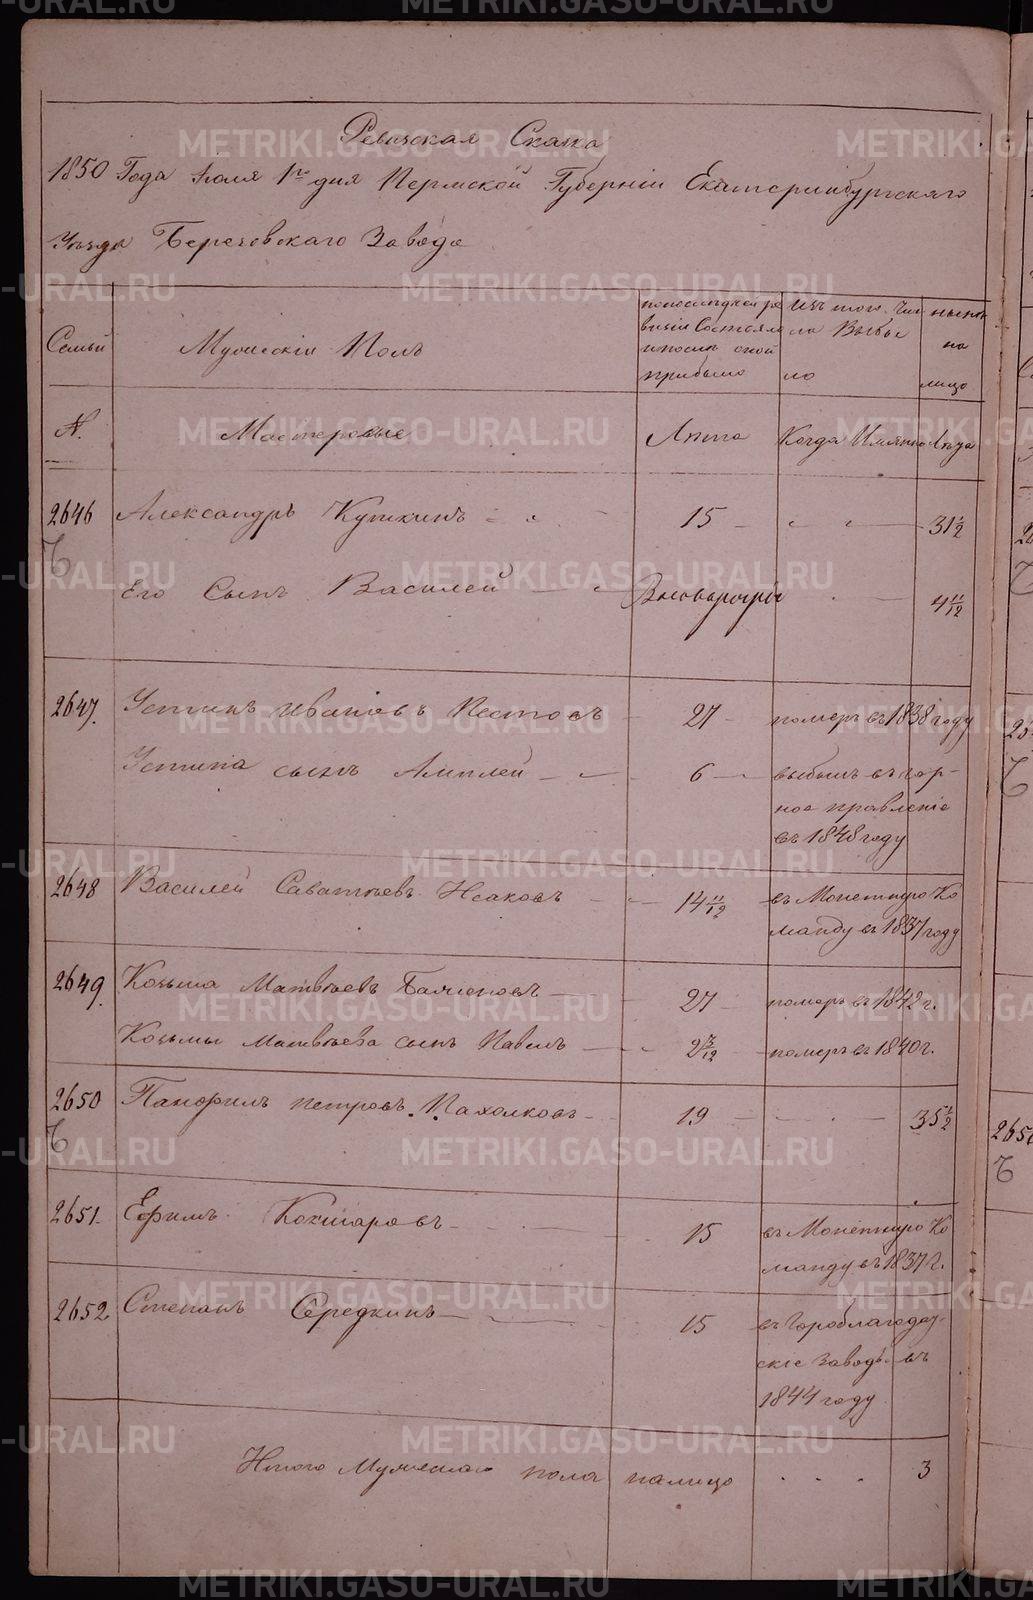 Ревизская Сказка
1850 Года Іюля 1го дня Пермской Губерніи Екатеринбургскаго
Уѣзда Березовскаго Завода
Семьи
Мужескій Полъ
по последней ре
визіи Состояло
и после оной
прибыло
Изъ того Чис
ла Выбы
ло
ныне
на
лицо
№.
Мастеровые
Лѣта
Когда Имянно
Лѣта
2646 Александръ Кушкинъ 15 31 1/2
Его Сынъ Василей 4 11/12
2647. Устинъ Ивановъ Пестовъ 27 померъ въ 1838 году
Устина сынъ 6 выбылъ въ гор-
ное правленіе
въ 1848 году
2648 Василей Саватѣевъ Исаковъ 14 11/12 въ Монетную Ко
манду въ 1837 году
2649. Козьма Матвѣевъ 27 померъ въ 1842 г.
Козьмы Матвѣева сынъ Павелъ 2 7/12 померъ въ 1840 г.
2650 Панфилъ петровъ. Пахолковъ 19 35 1/2
2651. Ефимъ Кокшаровъ 15 въ Монетную Ко
манду въ 1837 г.
2652 Степанъ Середкинъ 15 въ Гороблагодат-
скіе заводы въ
1844 году
Итого Мужескаго пола налицо 3
METRIKI.GASO-URAL.RU